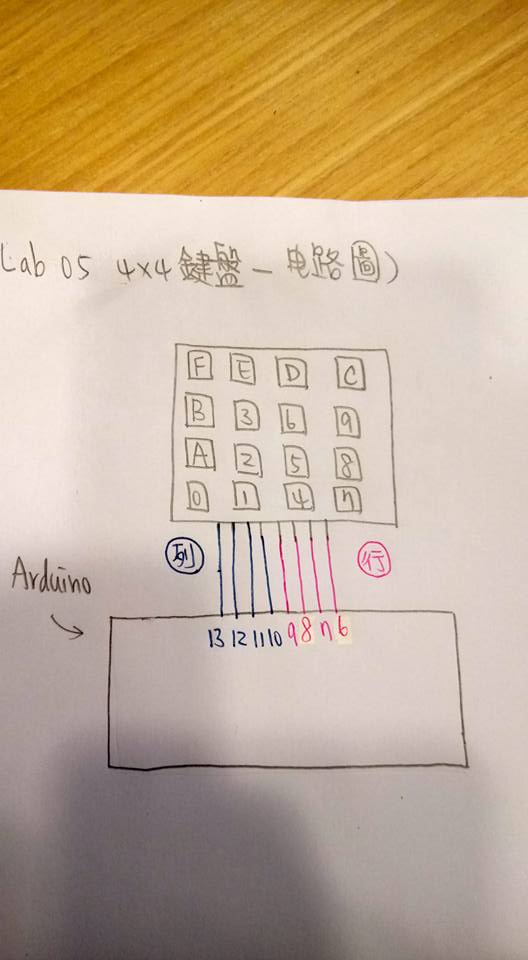 Lab 05 4x4鍵盤-电路圖)
F E D C
B 3 6 9
A 2 5 8
0 1 4 7
列 行
Arduino
13 12 11 10 9 8 7 6